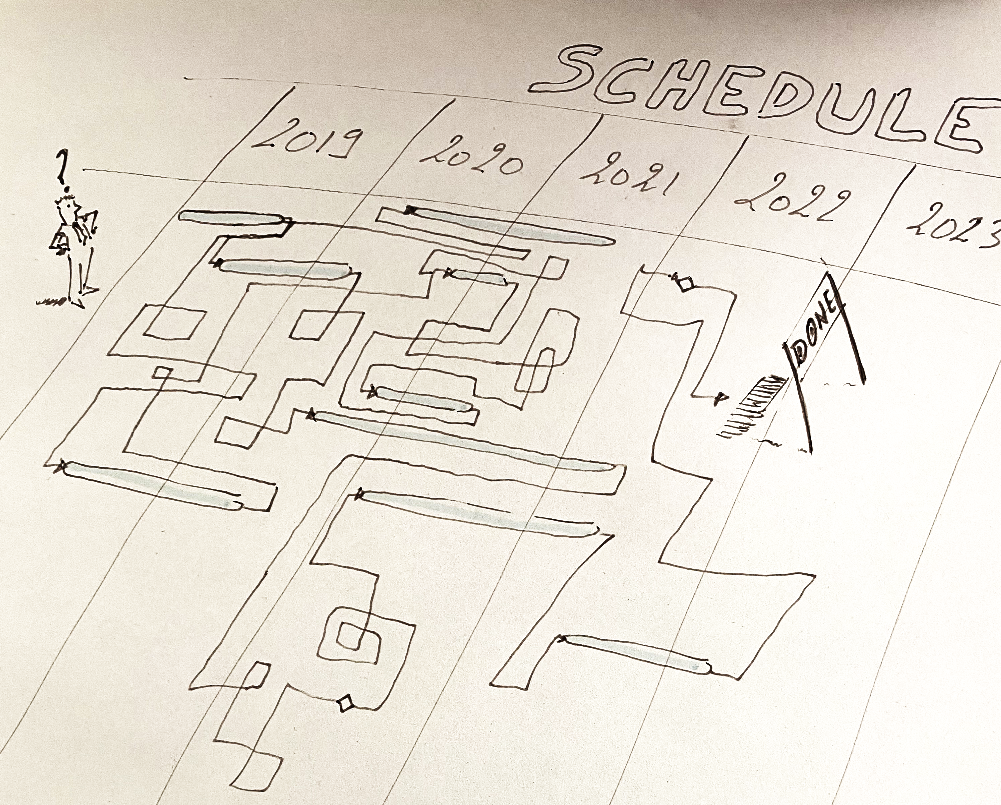 SCHEDULE
2019 2020 2021 2022 2023
?
DONE